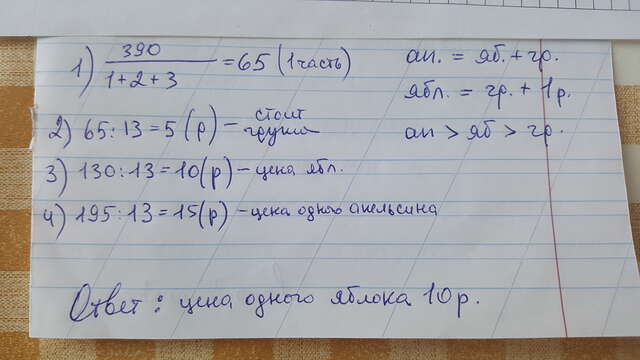 1) 390 / 1+2+3 = 65 (1 часть)
2) 65 : 13 = 5 (р) – стоит груша
3) 130 : 13 = 10 (р) – цена ябл.
4) 195 : 13 = 15 (р) – цена одного апельсина
ап. = яб. + гр.
ябл. = гр. + 1 р.
ап > яб > гр.
Ответ: цена одного яблока 10 р.